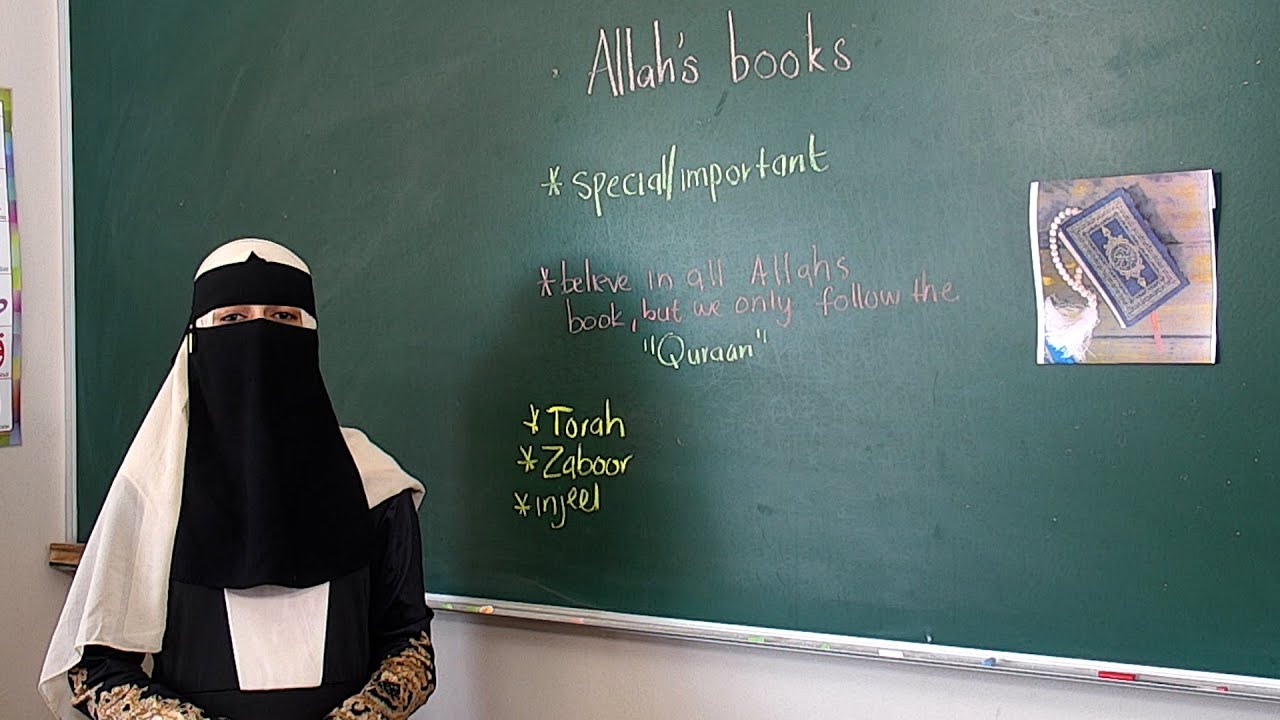 Allah's books
* special/important
* believe in all Allahs
book, but we only follow the
"Quraan"
* Torah
* Zaboor
* injeel